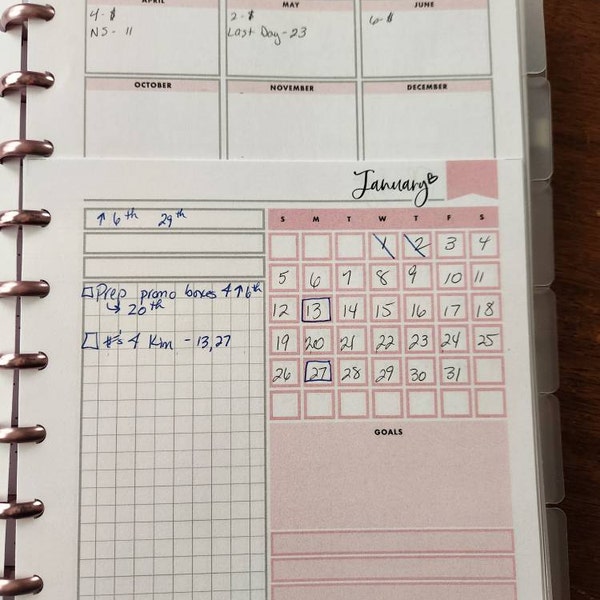 APRIL MAY JUNE
4-$ 2-$ 6-$
NS- 11 Last Day-23
OCTOBER NOVEMBER DECEMBER
January
↑ 6th 29th
S M T W T F S
1 2 3 4
5 6 7 8 9 10 11
12 13 14 15 16 17 18
19 20 21 22 23 24 25
26 27 28 29 30 31
□ Prep promo boxes 4 ↑ 6th
↳ 20th
□ #'s 4 Kim - 13, 27
GOALS